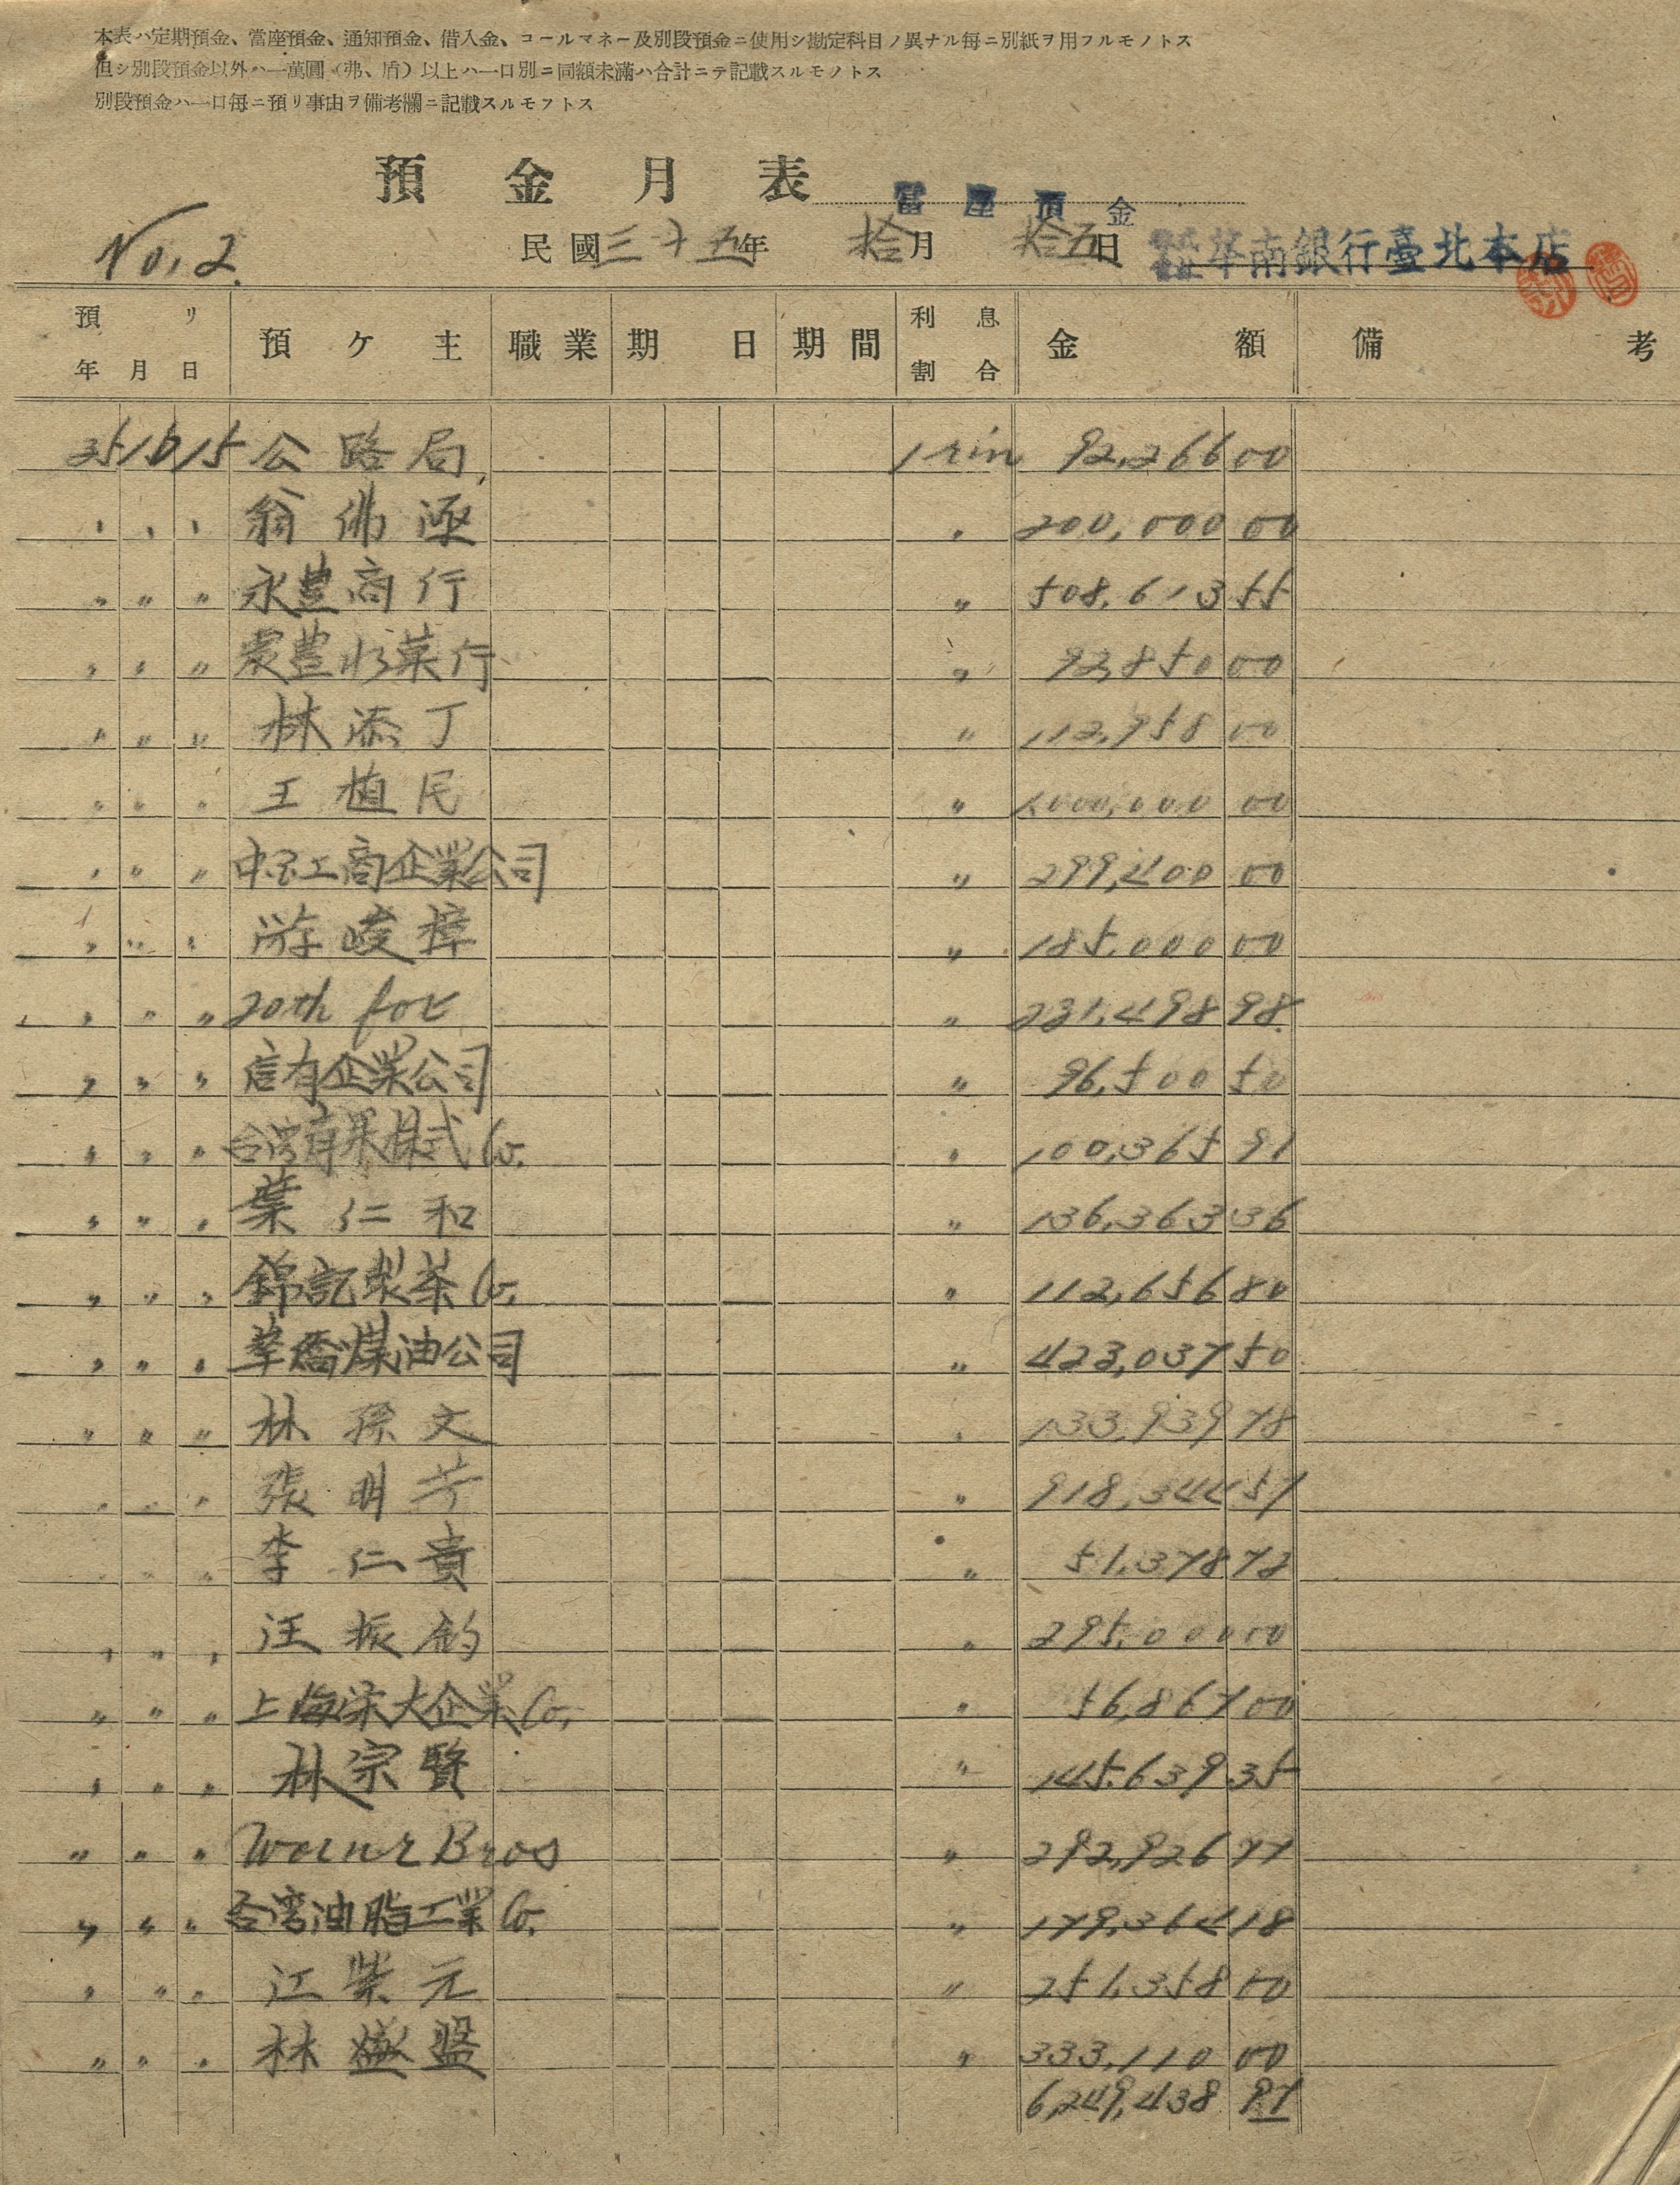 本表ハ定期預金、當座預金、通知預金、借入金、コールマネー及別段預金ニ使用シ勘定科目ノ異ナル每ニ別紙ヲ用フルモノトス
但シ別段預金以外ハ一萬圓（弗、盾）以上ハ一口別ニ同額未滿ハ合計ニテ記載スルモノトス
別段預金ハ一口每ニ預リ事由ヲ備考欄ニ記載スルモフトス
預金月表 當座預金
No. 2. 民國三十五年 拾月 拾五日 華南銀行臺北本店
預リ年月日 預ケ主 職業 期日 期間 利息割合 金額 備考
35 10 15 公路局 1 rin 92,266 00
、 、 、 翁佛 〃 200,000 00
〃 〃 〃 永豊商行 〃 508,613 55
〃 〃 〃 豊 菜行 〃 93,850 00
〃 〃 〃 林添丁 〃 112,958 00
〃 〃 〃 王植民 〃 1,000,000 00
〃 〃 〃 工商企業公司 〃 299,400 00
〃 〃 〃 游峻樟 〃 185,000 00
〃 〃 〃 20th fox 〃 231,498 98
〃 〃 〃 信有企業公司 〃 96,500 50
〃 〃 〃 台湾青果株式Co. 〃 100,365 91
〃 〃 〃 葉仁和 〃 136,363 36
〃 〃 〃 錦記製茶Co. 〃 112,656 80
〃 〃 〃 華僑煤油公司 〃 423,037 50
〃 〃 〃 林 文 〃 133,939 78
〃 〃 〃 張明芳 〃 918,344 57
〃 〃 〃 李仁貴 〃 51,378 72
〃 〃 〃 汪振鈞 〃 295,000 00
〃 〃 〃 上海栄大企業Co. 〃 56,867 00
〃 〃 〃 林宗賢 〃 145,639 35
〃 〃 〃 Warner Bros 〃 292,926 77
〃 〃 〃 台湾油脂工業Co. 〃 179,364 18
〃 〃 〃 江 元 〃 251,358 50
〃 〃 〃 林 盤 〃 333,110 00
6,249,438 97